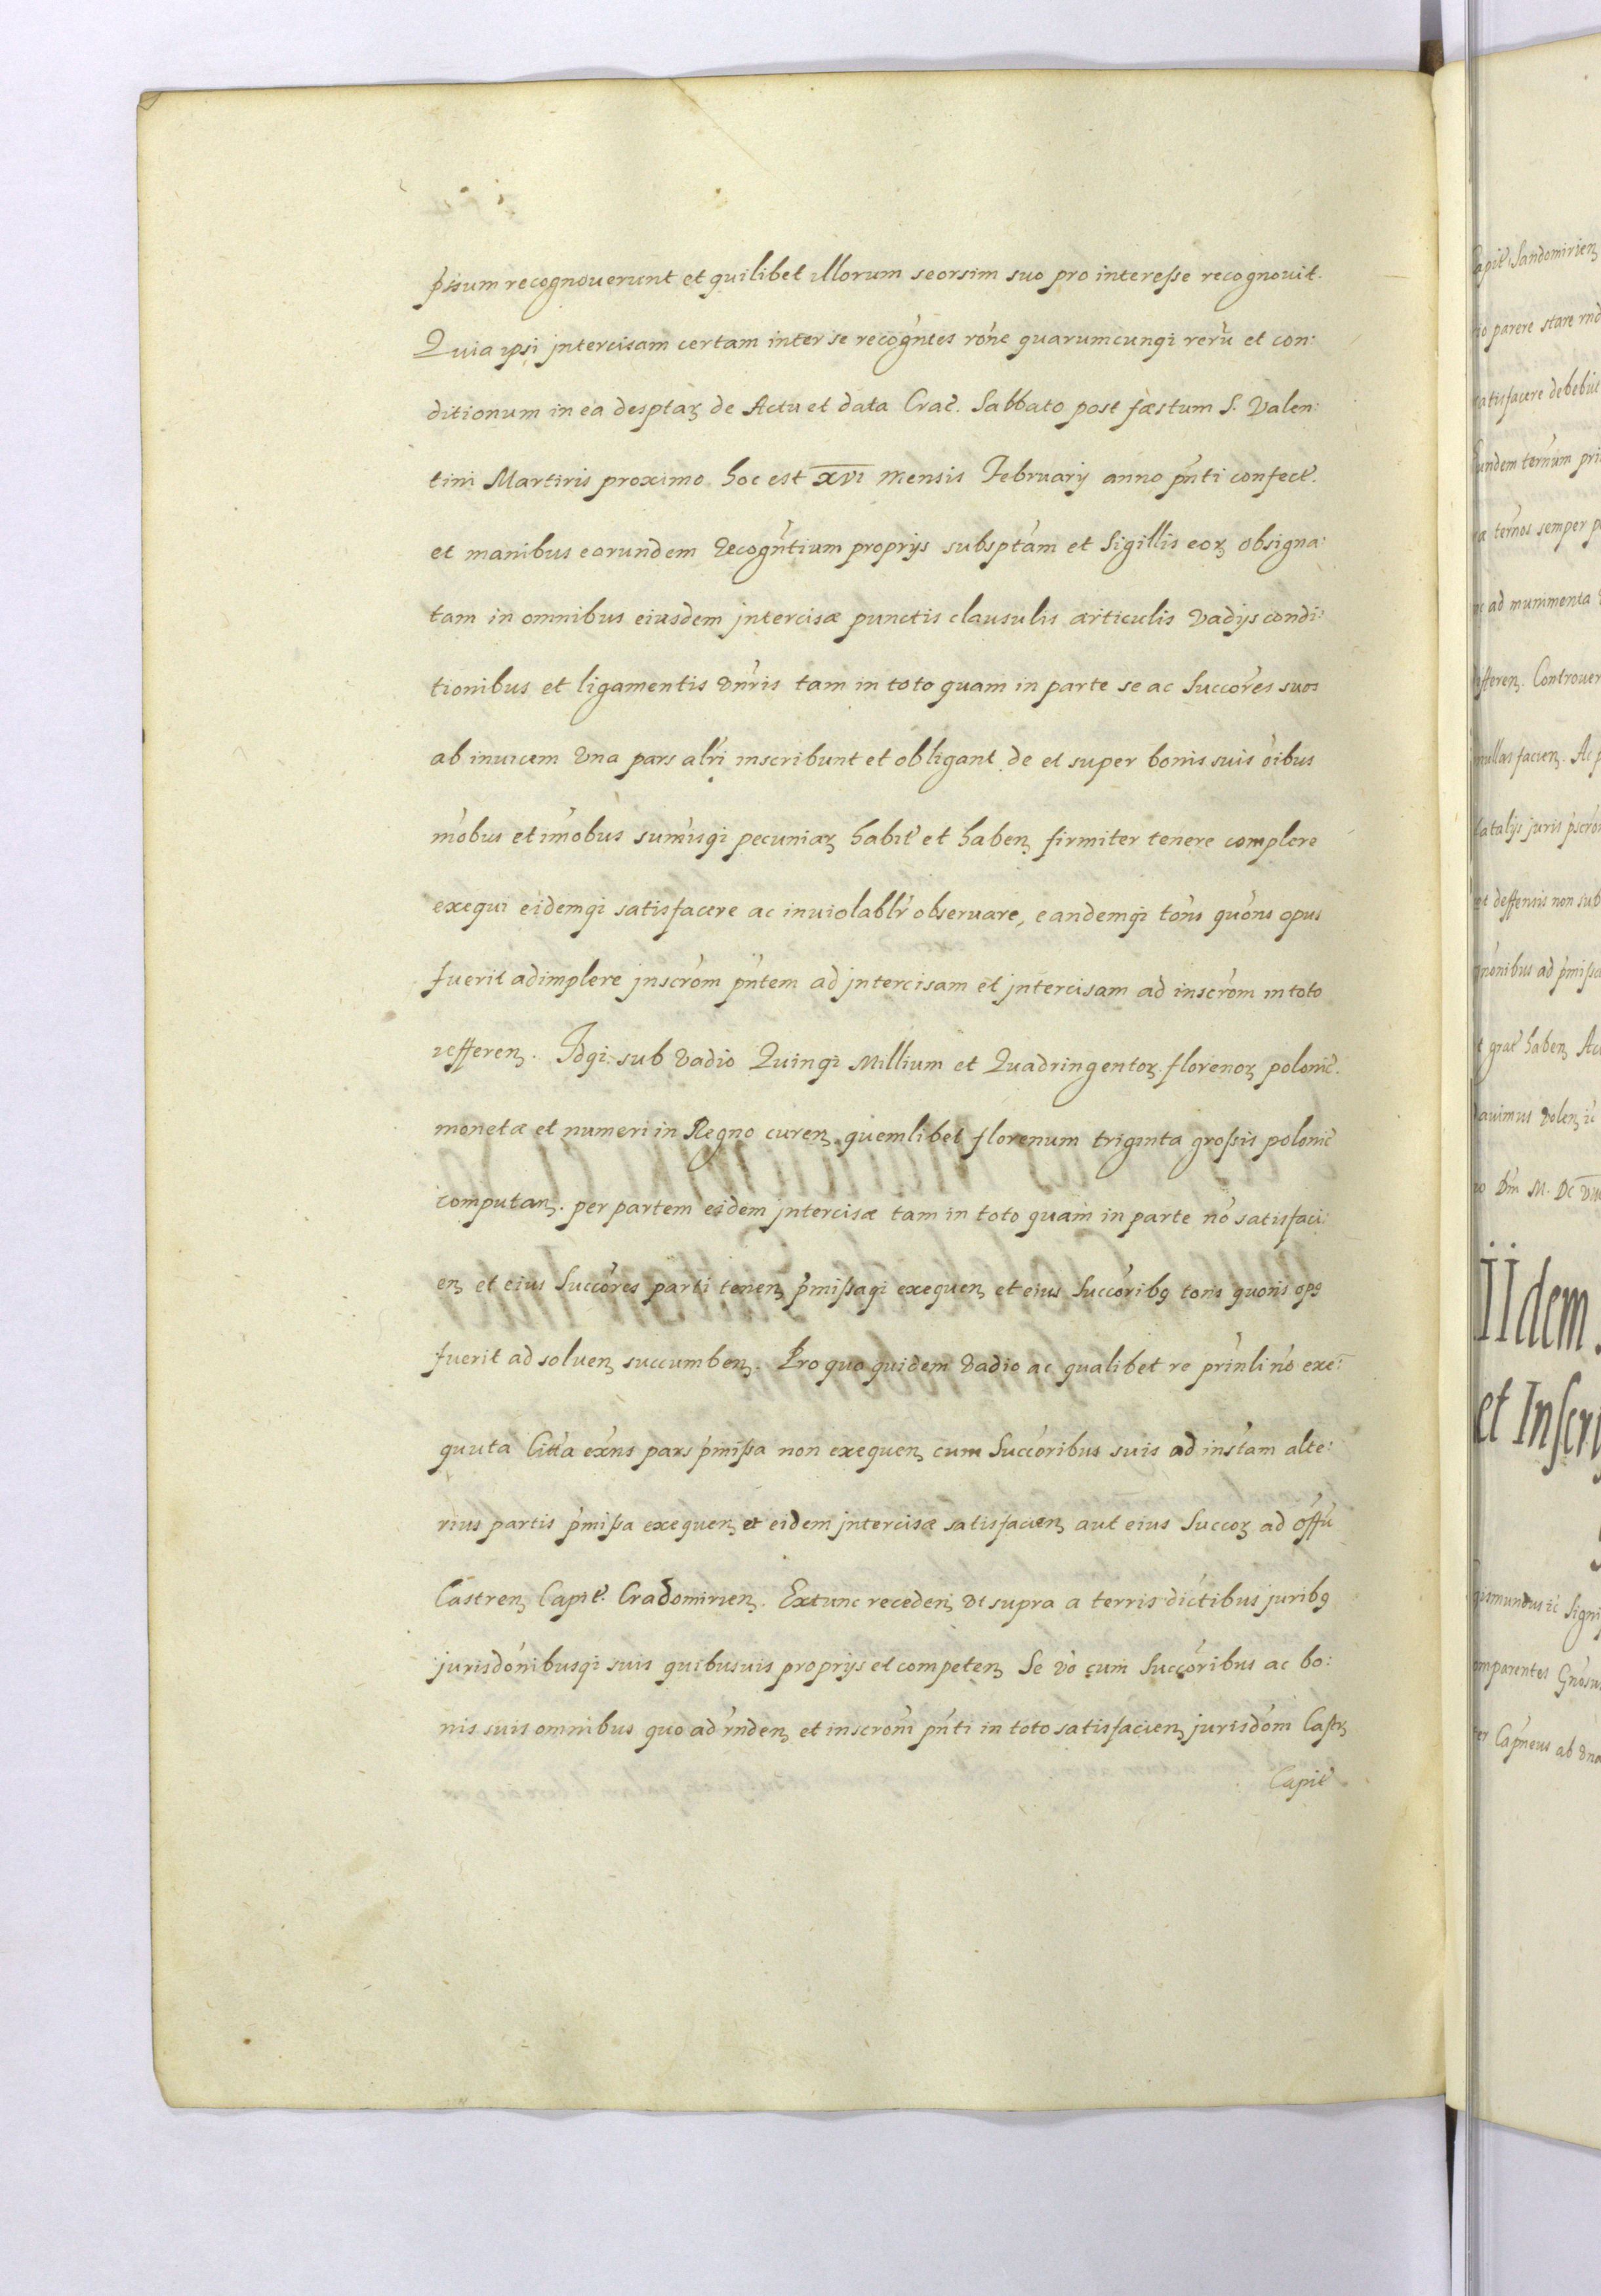 pssum recognouerunt et quilibet illorum seorsim suo pro interesse recognouit.
Quia ipsi jntercisam certam inter se recogntes rone quarumcunqi reru et con:
ditionum in ea desptaꝝ de Actu et data Crac. Sabbato post fæstum S. Valen:
tini Martiris proximo hoc est XVI mensis February anno pnti confect.
et manibus eorundem Recogntium proprijs subsptam et Sigillis eoꝝ obsigna:
tam in omnibus eiusdem jntercisæ punctis clausulis articulis Vadijs condi:
tionibus et ligamentis Vnris tam in toto quam in parte se ac Succores suos
ab inuicem Vna pars altri inscribunt et obligant de et super bonis suis oibus
mobus et imobus sumisqi pecuniaꝝ habit et habenꝫ firmiter tenere complere
exequi eidemqi satisfacere ac inuiolablr obseruare, eandemqi tons quons opus
fuerit adimplere jnscrom pntem ad jntercisam et jntercisam ad inscrom in toto
refferenꝫ. Idqi sub Vadio Quinqi Millium et Quadringentoꝝ florenoꝝ polonic.
monetæ et numeri in Regno curenꝫ quemlibet florenum triginta grossis polonic
computanꝫ. per partem eidem jntercisæ tam in toto quam in parte no satisfaci:
enꝫ et eius Succores parti tenenꝫ pmissaqi exequenꝫ et eius Succoribꝰ tonis quonis opꝰ
fuerit ad soluenꝫ succumbenꝫ. Pro quo quidem Vadio ac qualibet re prinli no exe:
quuta Citta exns pars pmissa non exequenꝫ cum Succoribus suis ad instam alte:
rius partis pmissa exequenꝫ et eidem jntercisæ satisfacienꝫ aut eius Succoꝝ ad offu
Castrenꝫ Capit. Cradomirienꝫ. Extunc recedenꝫ Vt supra a terris dictibus juribꝰ
jurisdonibusqi suis quibusuis proprijs et competenꝫ Se Vo cum Succoribus ac bo:
nis suis omnibus quo ad rndenꝫ et inscroni pnti in toto satisfacienꝫ jurisdoni Castꝝ
Capit